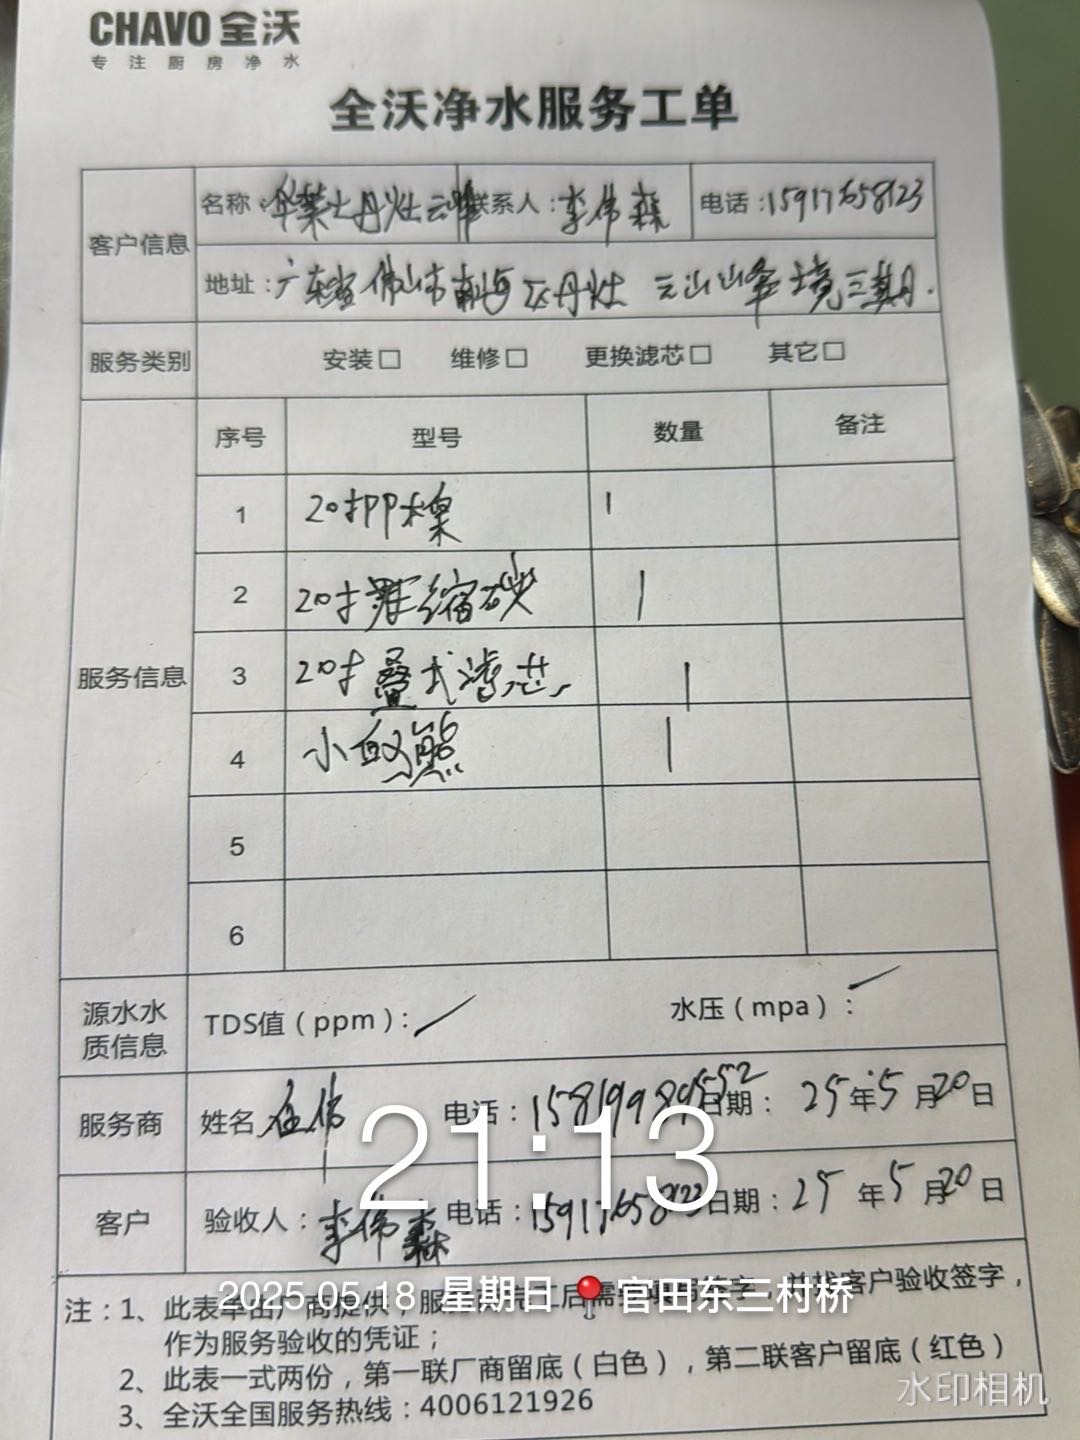 CHAVO 全沃
专注厨房净水
全沃净水服务工单
客户信息
名称：华業牡丹灶云峰 联系人：李伟森 电话：15917658123
地址：广东省佛山市南海区丹灶 云山峯境三期
服务类别 安装□ 维修□ 更换滤芯□ 其它□
服务信息
序号 型号 数量 备注
1 20寸PP棉 1
2 20寸压缩碳 1
3 20寸叠式滤芯 1
4 小白熊 1
5
6
源水水质信息 TDS值（ppm）：/ 水压（mpa）：/
服务商 姓名 伟 电话：15819989552 日期：25年5月20日
客户 验收人：李伟森 电话：15917658123 日期：25年5月20日
21:13
2025.05.18 星期日 官田东三村桥
注：1、此表单由厂商提供，服 后需 客户验收签字，
作为服务验收的凭证；
2、此表一式两份，第一联厂商留底（白色），第二联客户留底（红色）
3、全沃全国服务热线：4006121926
水印相机